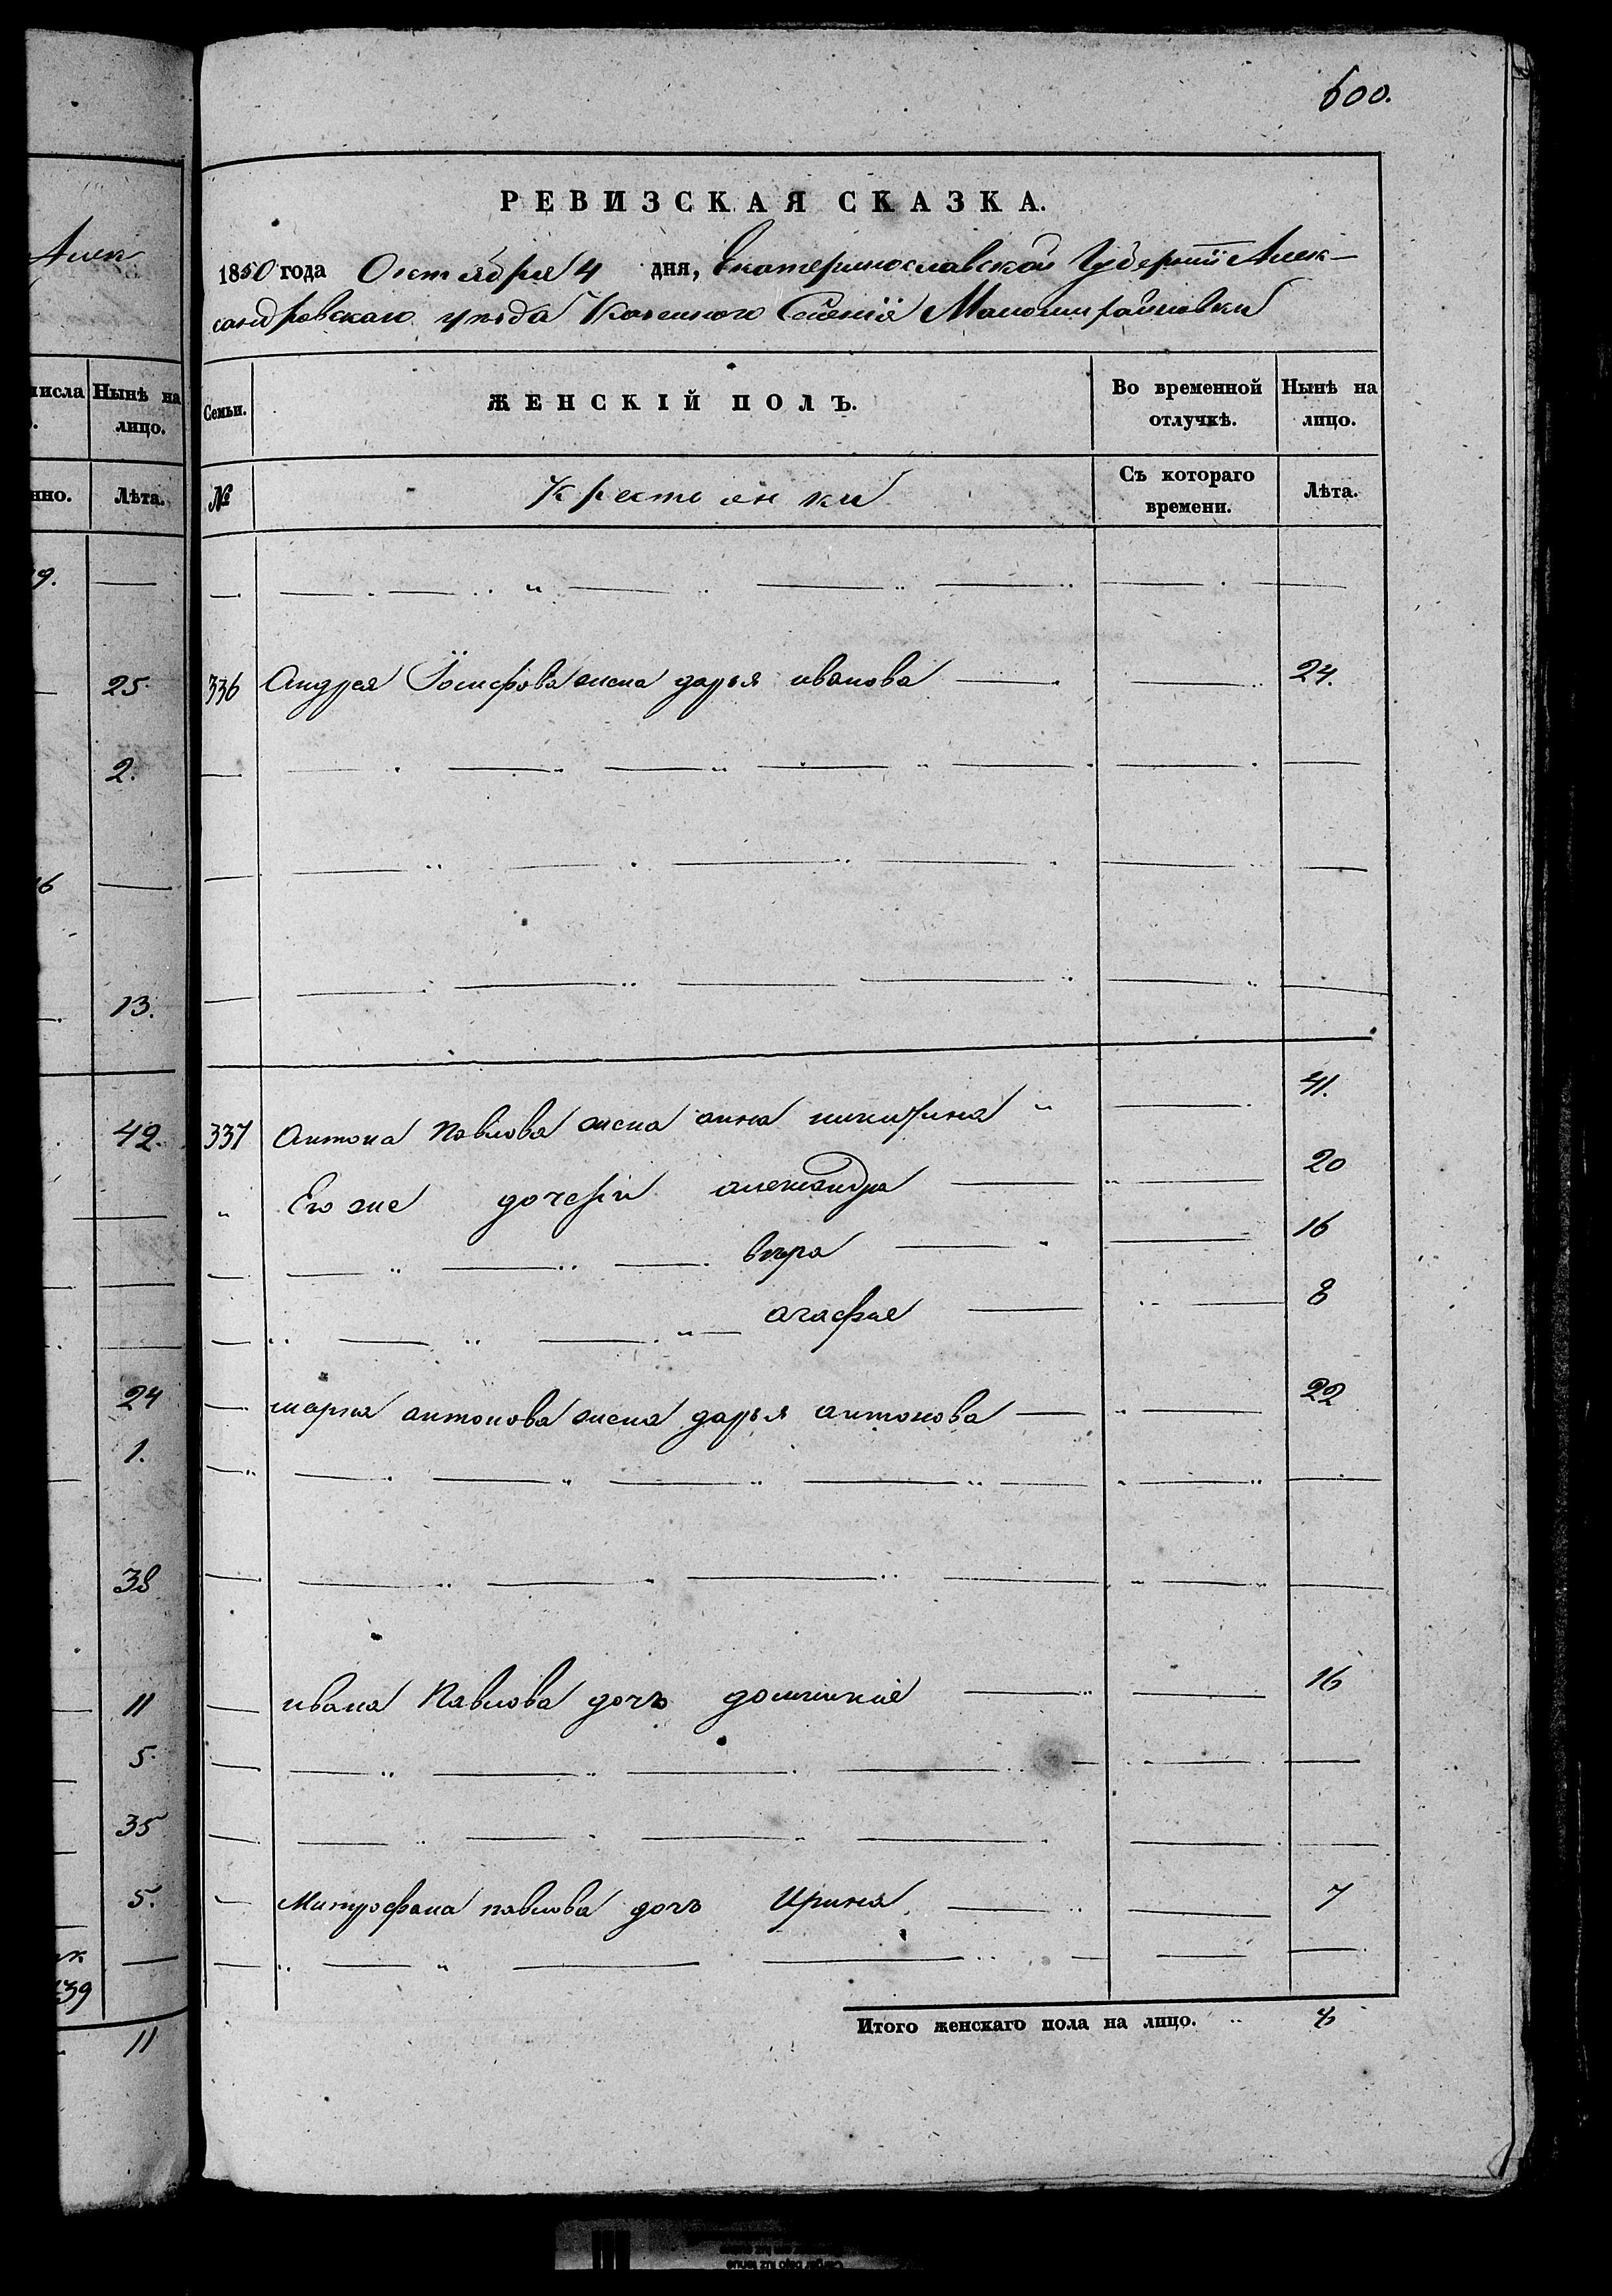 600.
Алек
РЕВИЗСКАЯ СКАЗКА.
1850 года Октября 4 дня, Екатеринославской Губернии Алек-
сандровскаго уезда Казенного Селенія Маломихайловки
числа
Ныне на
лицо.
нно.
Лѣта.
Семьи.
ЖЕНСКІЙ ПОЛЪ.
Во временной
отлучкѣ.
Нынѣ на
лицо.
№
Крестьянки
Съ котораго
времени.
Лѣта.
9.
25
336 Андрея Іосифова жена дарья иванова 24.
2.
16
13.
42.
337 Антона Павлова жена анна никитина 41.
Его же дочери александра 20
вера 16
агафия 8
24
марка антонова жена дарья антонова 22
1.
38
11
ивана Павлова дочь домникия 16
5.
35
5.
Митрофана павлова дочь Ирина 7
39
Итого женскаго пола на лицо.
11